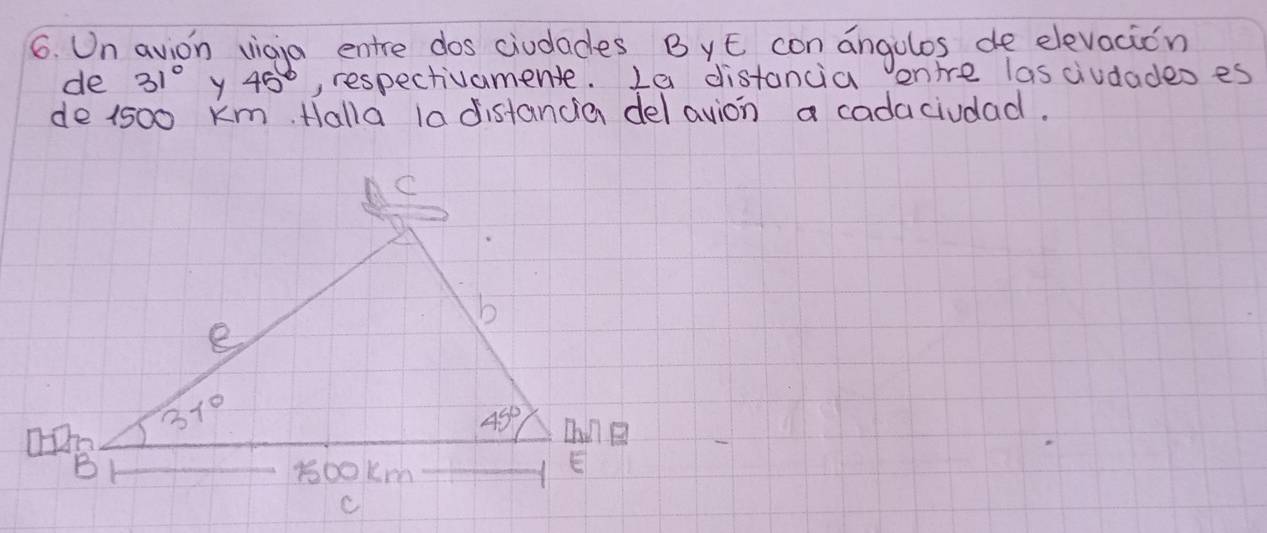 6. Un avión viaja entre dos ciudades B y E con ángulos de elevación
de 31° y 45°, respectivamente. La distancia entre las ciudades es
de 1500 Km. Halla la distancia del avión a cada ciudad.
C
e
b
31°
45°
B
E
1500 Km
C